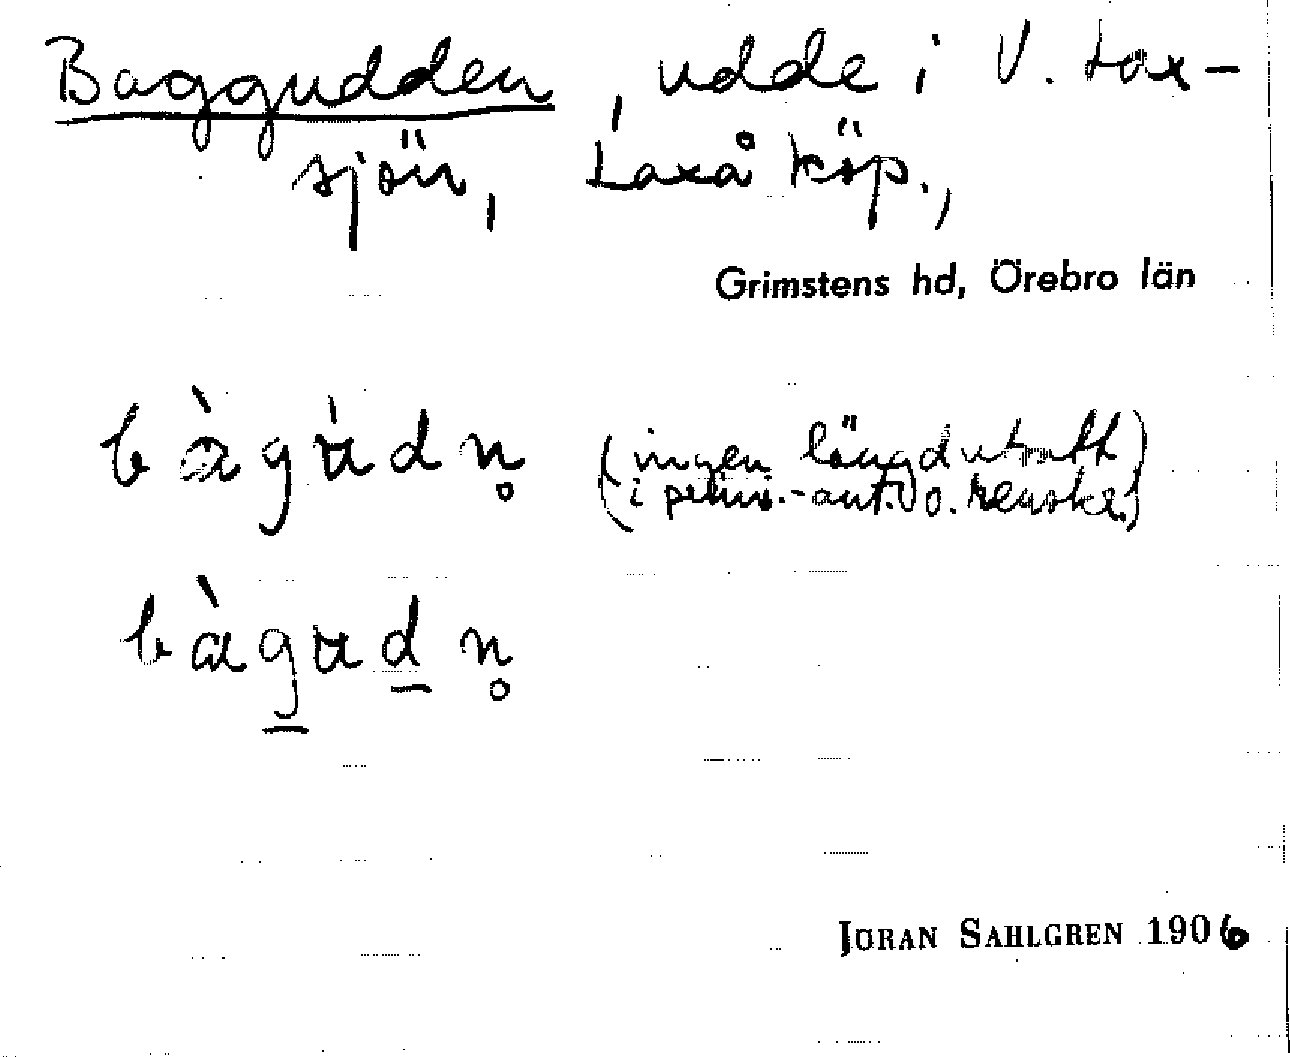 Baggudden, udde i V. Lax-
sjön, Laxå köp.,
Grimstens hd, Örebro län
bàgàdn̥ (ingen längdutsatt
i prim.-ant. o. renskr.)
bàg̲ad̲n̥
JÖRAN SAHLGREN 1906